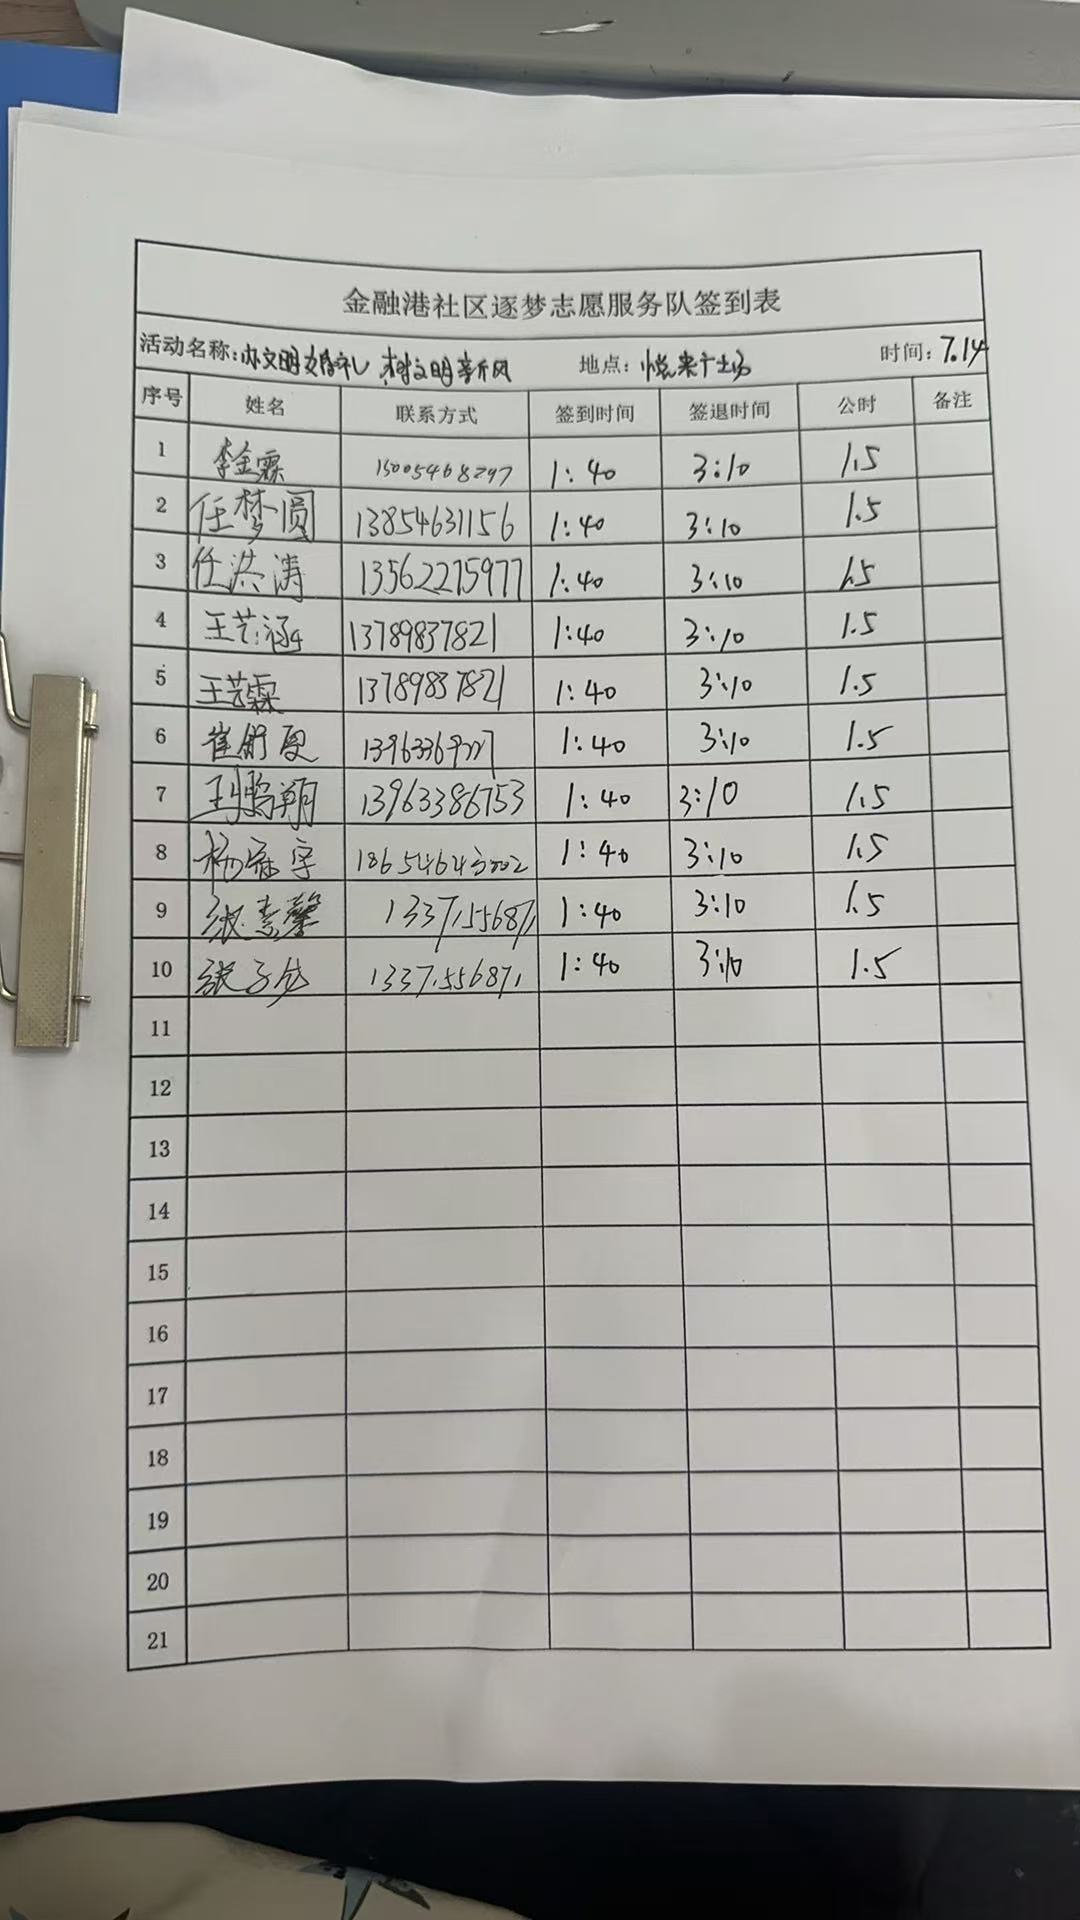 金融港社区逐梦志愿服务队签到表
活动名称:办文明婚礼 树文明新风 地点:悦来广场 时间:7.14
序号 姓名 联系方式 签到时间 签退时间 公时 备注
1 李金霖 15005468297 1:40 3:10 1.5
2 任梦圆 13854631156 1:40 3:10 1.5
3 任洪涛 13562275977 1:40 3:10 1.5
4 王艺涵 13789837821 1:40 3:10 1.5
5 王艺霖 13789837821 1:40 3:10 1.5
6 崔舒 1:40 3:10 1.5
7 鹏翔 13963386753 1:40 3:10 1.5
8 杨宇 1:40 3:10 1.5
9 张素馨 13371556871 1:40 3:10 1.5
10 张子 13371556871 1:40 3:10 1.5
11
12
13
14
15
16
17
18
19
20
21